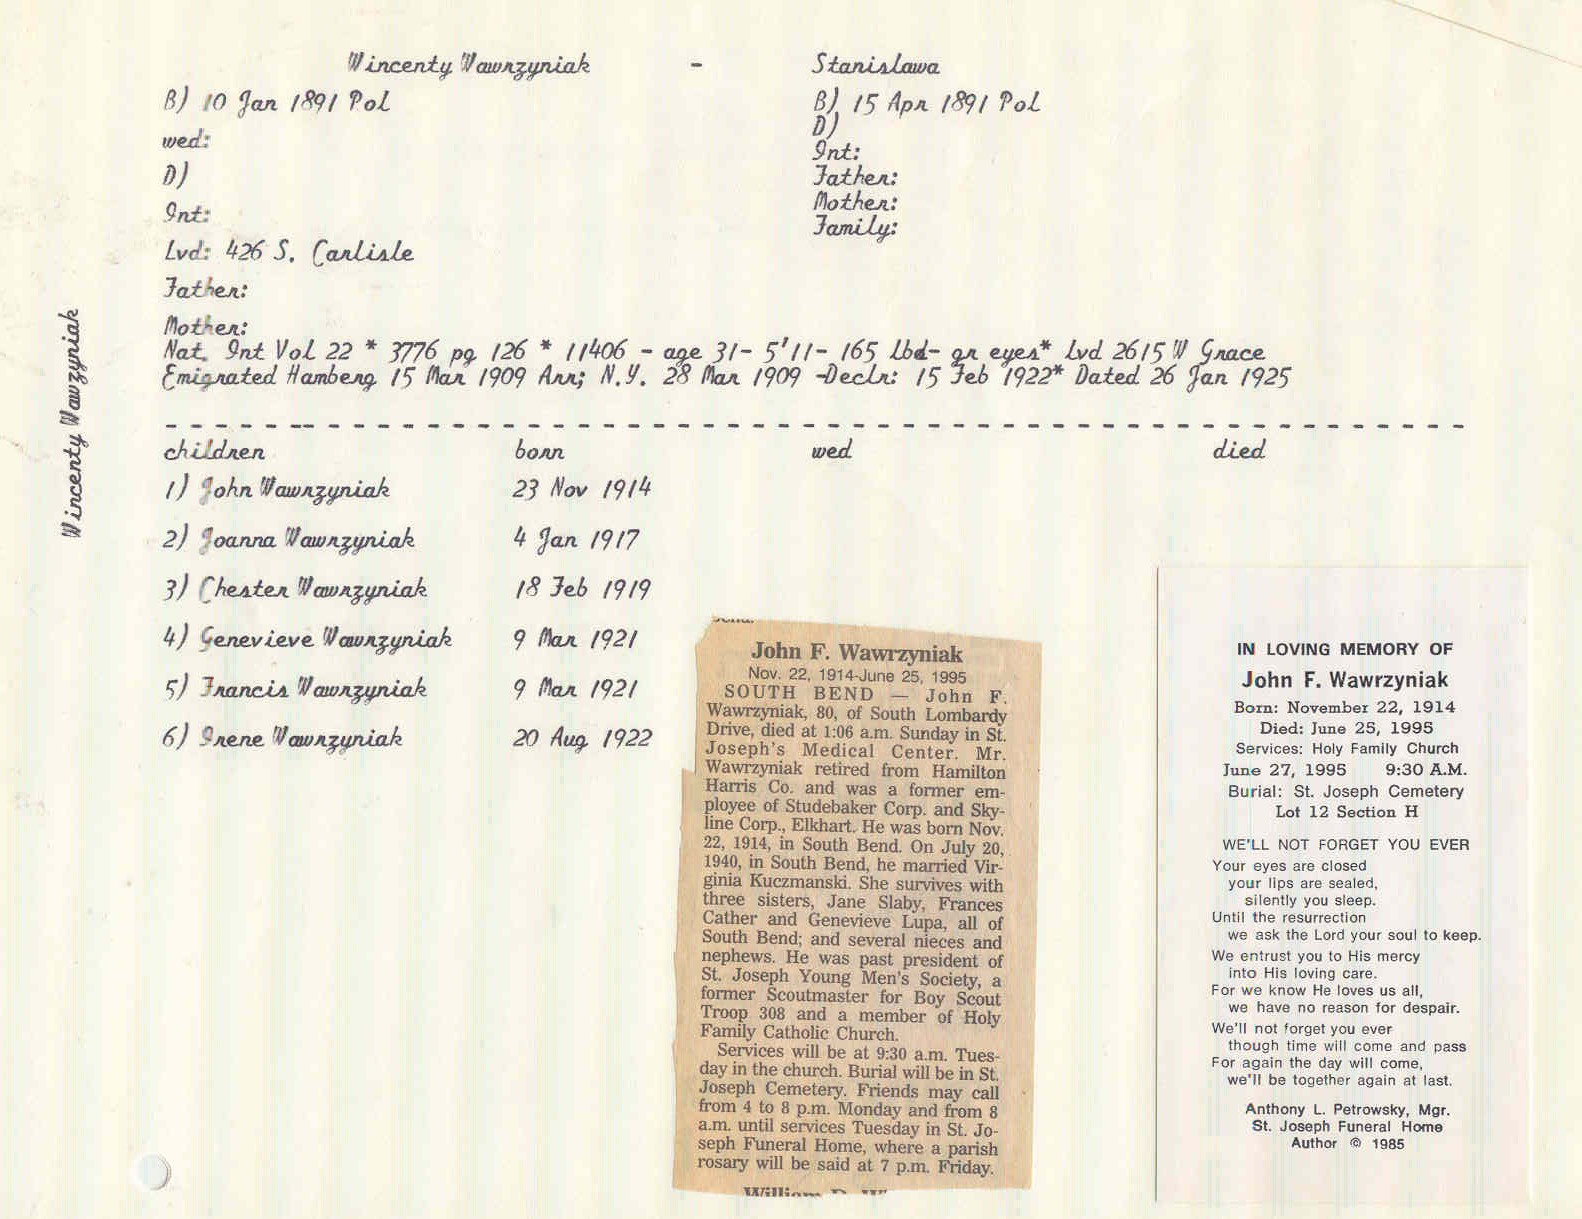 Wincenty Wawrzyniak - Stanislawa
B) 10 Jan 1891 Pol
wed:
D)
Int:
Lvd: 426 S. Carlisle
Father:
Mother:
B) 15 Apr 1891 Pol
D)
Int:
Father:
Mother:
Family:
Nat. Int Vol 22 * 3776 pg 126 * 11406 - age 31- 5'11- 165 lbd- gr eyes* Lvd 2615 W Grace
Emigrated Hamberg 15 Mar 1909 Arr; N.Y. 28 Mar 1909 -Declr: 15 Feb 1922* Dated 26 Jan 1925
Wincenty Wawrzyniak
children born wed died
1) John Wawrzyniak 23 Nov 1914
2) Joanna Wawrzyniak 4 Jan 1917
3) Chester Wawrzyniak 18 Feb 1919
4) Genevieve Wawrzyniak 9 Mar 1921
5) Francis Wawrzyniak 9 Mar 1921
6) Irene Wawrzyniak 20 Aug 1922
John F. Wawrzyniak
Nov. 22, 1914-June 25, 1995
SOUTH BEND — John F.
Wawrzyniak, 80, of South Lombardy
Drive, died at 1:06 a.m. Sunday in St.
Joseph's Medical Center. Mr.
Wawrzyniak retired from Hamilton
Harris Co. and was a former em-
ployee of Studebaker Corp. and Sky-
line Corp., Elkhart. He was born Nov.
22, 1914, in South Bend. On July 20,
1940, in South Bend, he married Vir-
ginia Kuczmanski. She survives with
three sisters, Jane Slaby, Frances
Cather and Genevieve Lupa, all of
South Bend; and several nieces and
nephews. He was past president of
St. Joseph Young Men's Society, a
former Scoutmaster for Boy Scout
Troop 308 and a member of Holy
Family Catholic Church.
Services will be at 9:30 a.m. Tues-
day in the church. Burial will be in St.
Joseph Cemetery. Friends may call
from 4 to 8 p.m. Monday and from 8
a.m. until services Tuesday in St. Jo-
seph Funeral Home, where a parish
rosary will be said at 7 p.m. Friday.
IN LOVING MEMORY OF
John F. Wawrzyniak
Born: November 22, 1914
Died: June 25, 1995
Services: Holy Family Church
June 27, 1995 9:30 A.M.
Burial: St. Joseph Cemetery
Lot 12 Section H
WE'LL NOT FORGET YOU EVER
Your eyes are closed
your lips are sealed,
silently you sleep.
Until the resurrection
we ask the Lord your soul to keep.
We entrust you to His mercy
into His loving care.
For we know He loves us all,
we have no reason for despair.
We'll not forget you ever
though time will come and pass
For again the day will come,
we'll be together again at last.
Anthony L. Petrowsky, Mgr.
St. Joseph Funeral Home
Author © 1985